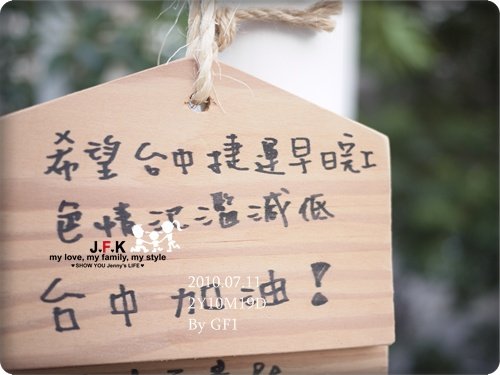 希望台中捷運早日完工
色情氾濫減低
台中加油!
J.F.K
my love, my family, my style
♥SHOW YOU Jenny's LIFE♥
2010.07.11
2Y10M19D
By GFI